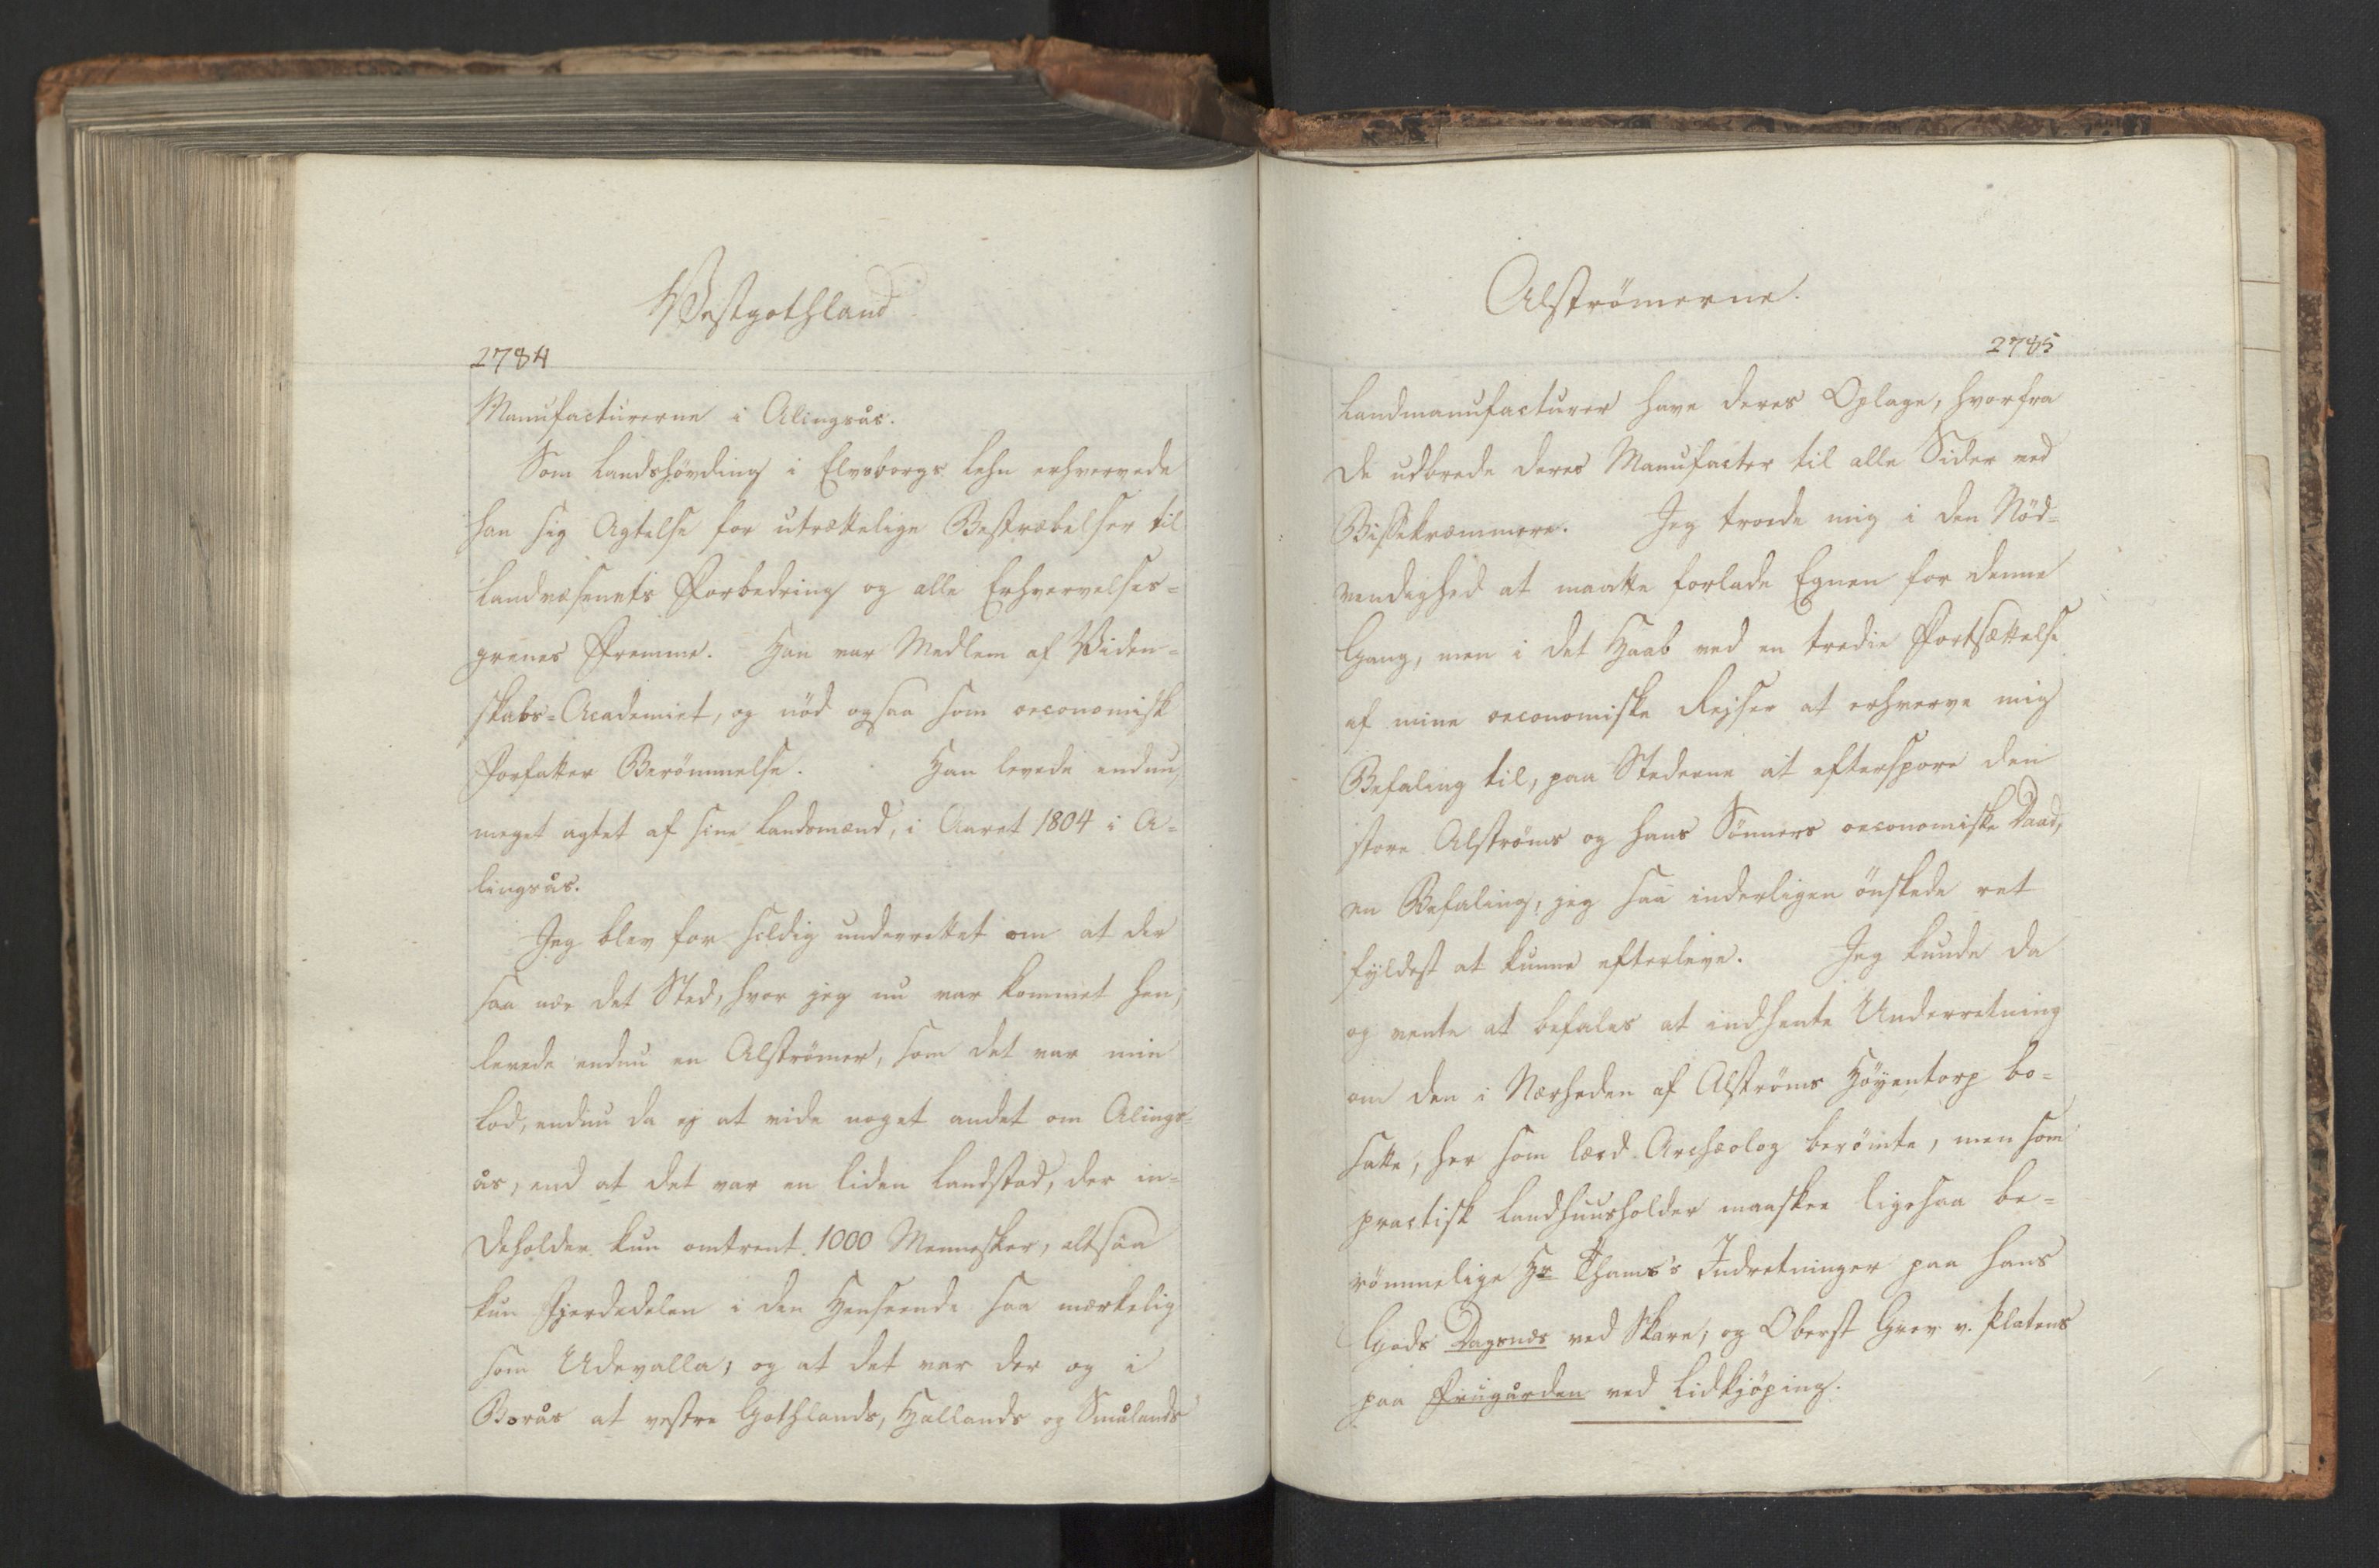 Westgothland
2784
Manufacturerne i Alingsås.
Som Landshövding i Elvsborgs Lehn erhvervede
han sig Agtelse for utrættelige Bestræbelser til
Landvæsenets Forbedring og alle Erhvervelses-
grenes Fremme. Han var Medlem af Viden-
skabs-Academiet, og nöd ogsaa som oeconomisk
Forfatter Berömmelse. Han levede endnu,
meget agtet af sine Landsmænd, i Aaret 1804 i A-
lingsås.
Jeg blev for sildig underrettet om at der
saa nær det Sted, hvor jeg nu var kommet hen,
levede endnu en Alströmer, som det var min
Lod, endnu da ej at vide noget andet om Alings-
ås, end at det var en liden Landstad, der in-
deholder kun omtrent 1000 Mennesker, altsaa
kun Fjerdedelen i den Henseende saa mærkelig
som Udevalla, og at det var der og i
Borås at vestre Gothlands, Hallands og Smålands
Alströmerne.
2785
Landmanufacturer have deres Oplage, hvorfra
de udbrede deres Manufacter til alle Sider ved
Bissekræmmere. Jeg troede mig i den Nöd-
vendighed at maatte forlade Egnen for denne
Gang, men i det Haab ved en tredie Fortsættelse
af mine oeconomiske Rejser at erhverve mig
Befaling til, paa Stederne at efterspore den
store Alströms og hans Sönners oeconomiske Daad,
en Befaling, jeg saa inderligen önskede ret
fyldest at kunne efterleve. Jeg kunde da
og vente at befales at indhente Underretning
om den i Nærheden af Alströms Höyentorp bo-
satte, her som lærd Archæolog berömte, men som
practisk Landhuusholder maaskee ligesaa be-
römmelige Hr Thams's Indretninger paa hans
Gods Dagsnæs ved Skara, og Oberst Grev v. Platens
paa Frugården ved Lidkjöping.